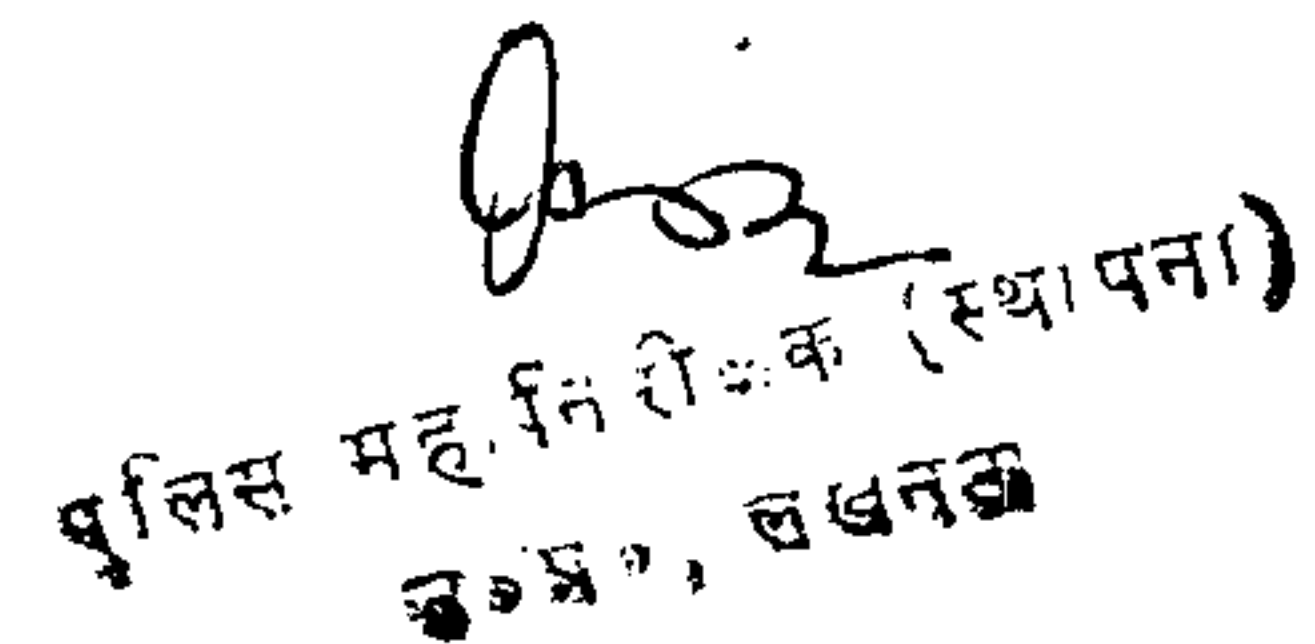 पुलिस महानिरीक्षक (स्थापना)
उ०प्र०, लखनऊ